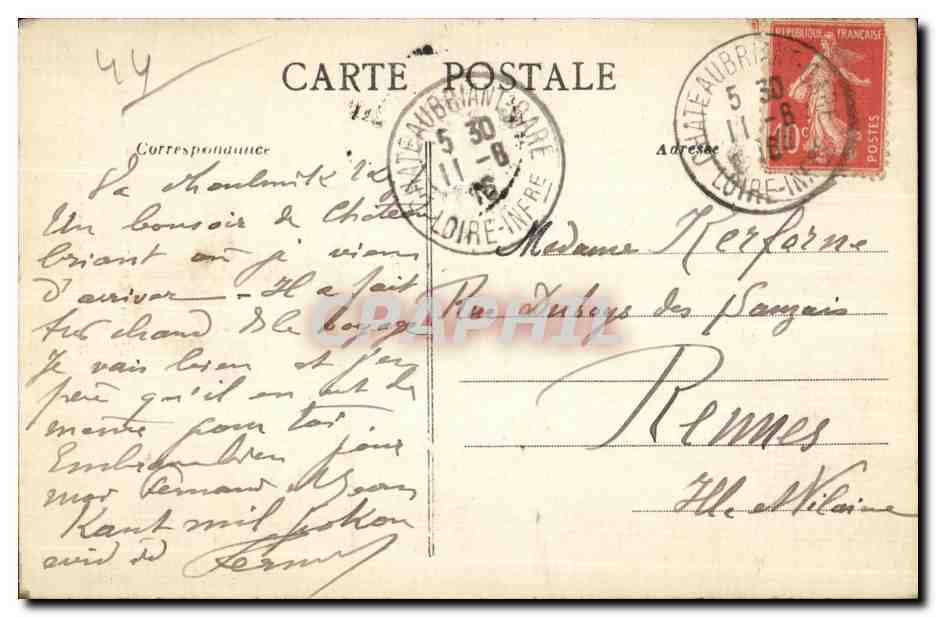 44
CARTE POSTALE
Correspondance
Adresse
CHATEAUBRIANT GARE
5 30
11 - 8
16
LOIRE-INFRE
CHATEAUBRIANT
5 30
11 - 8
16
LOIRE-INF
REPUBLIQUE FRANÇAISE
10c
POSTES
Un bonsoir de Château
briant où je viens
d'arriver - Il a fait
très chaud ds le voyage
Je vais bien et j'es
père qu'il en est de
même pour toi
Embrasse bien pour
moi Fernand et Jean
Kant mil pokou
evid
Madame Kerforne
Rue Duboys des Sauzais
Rennes
Ille et Vilaine
CPAPHIL